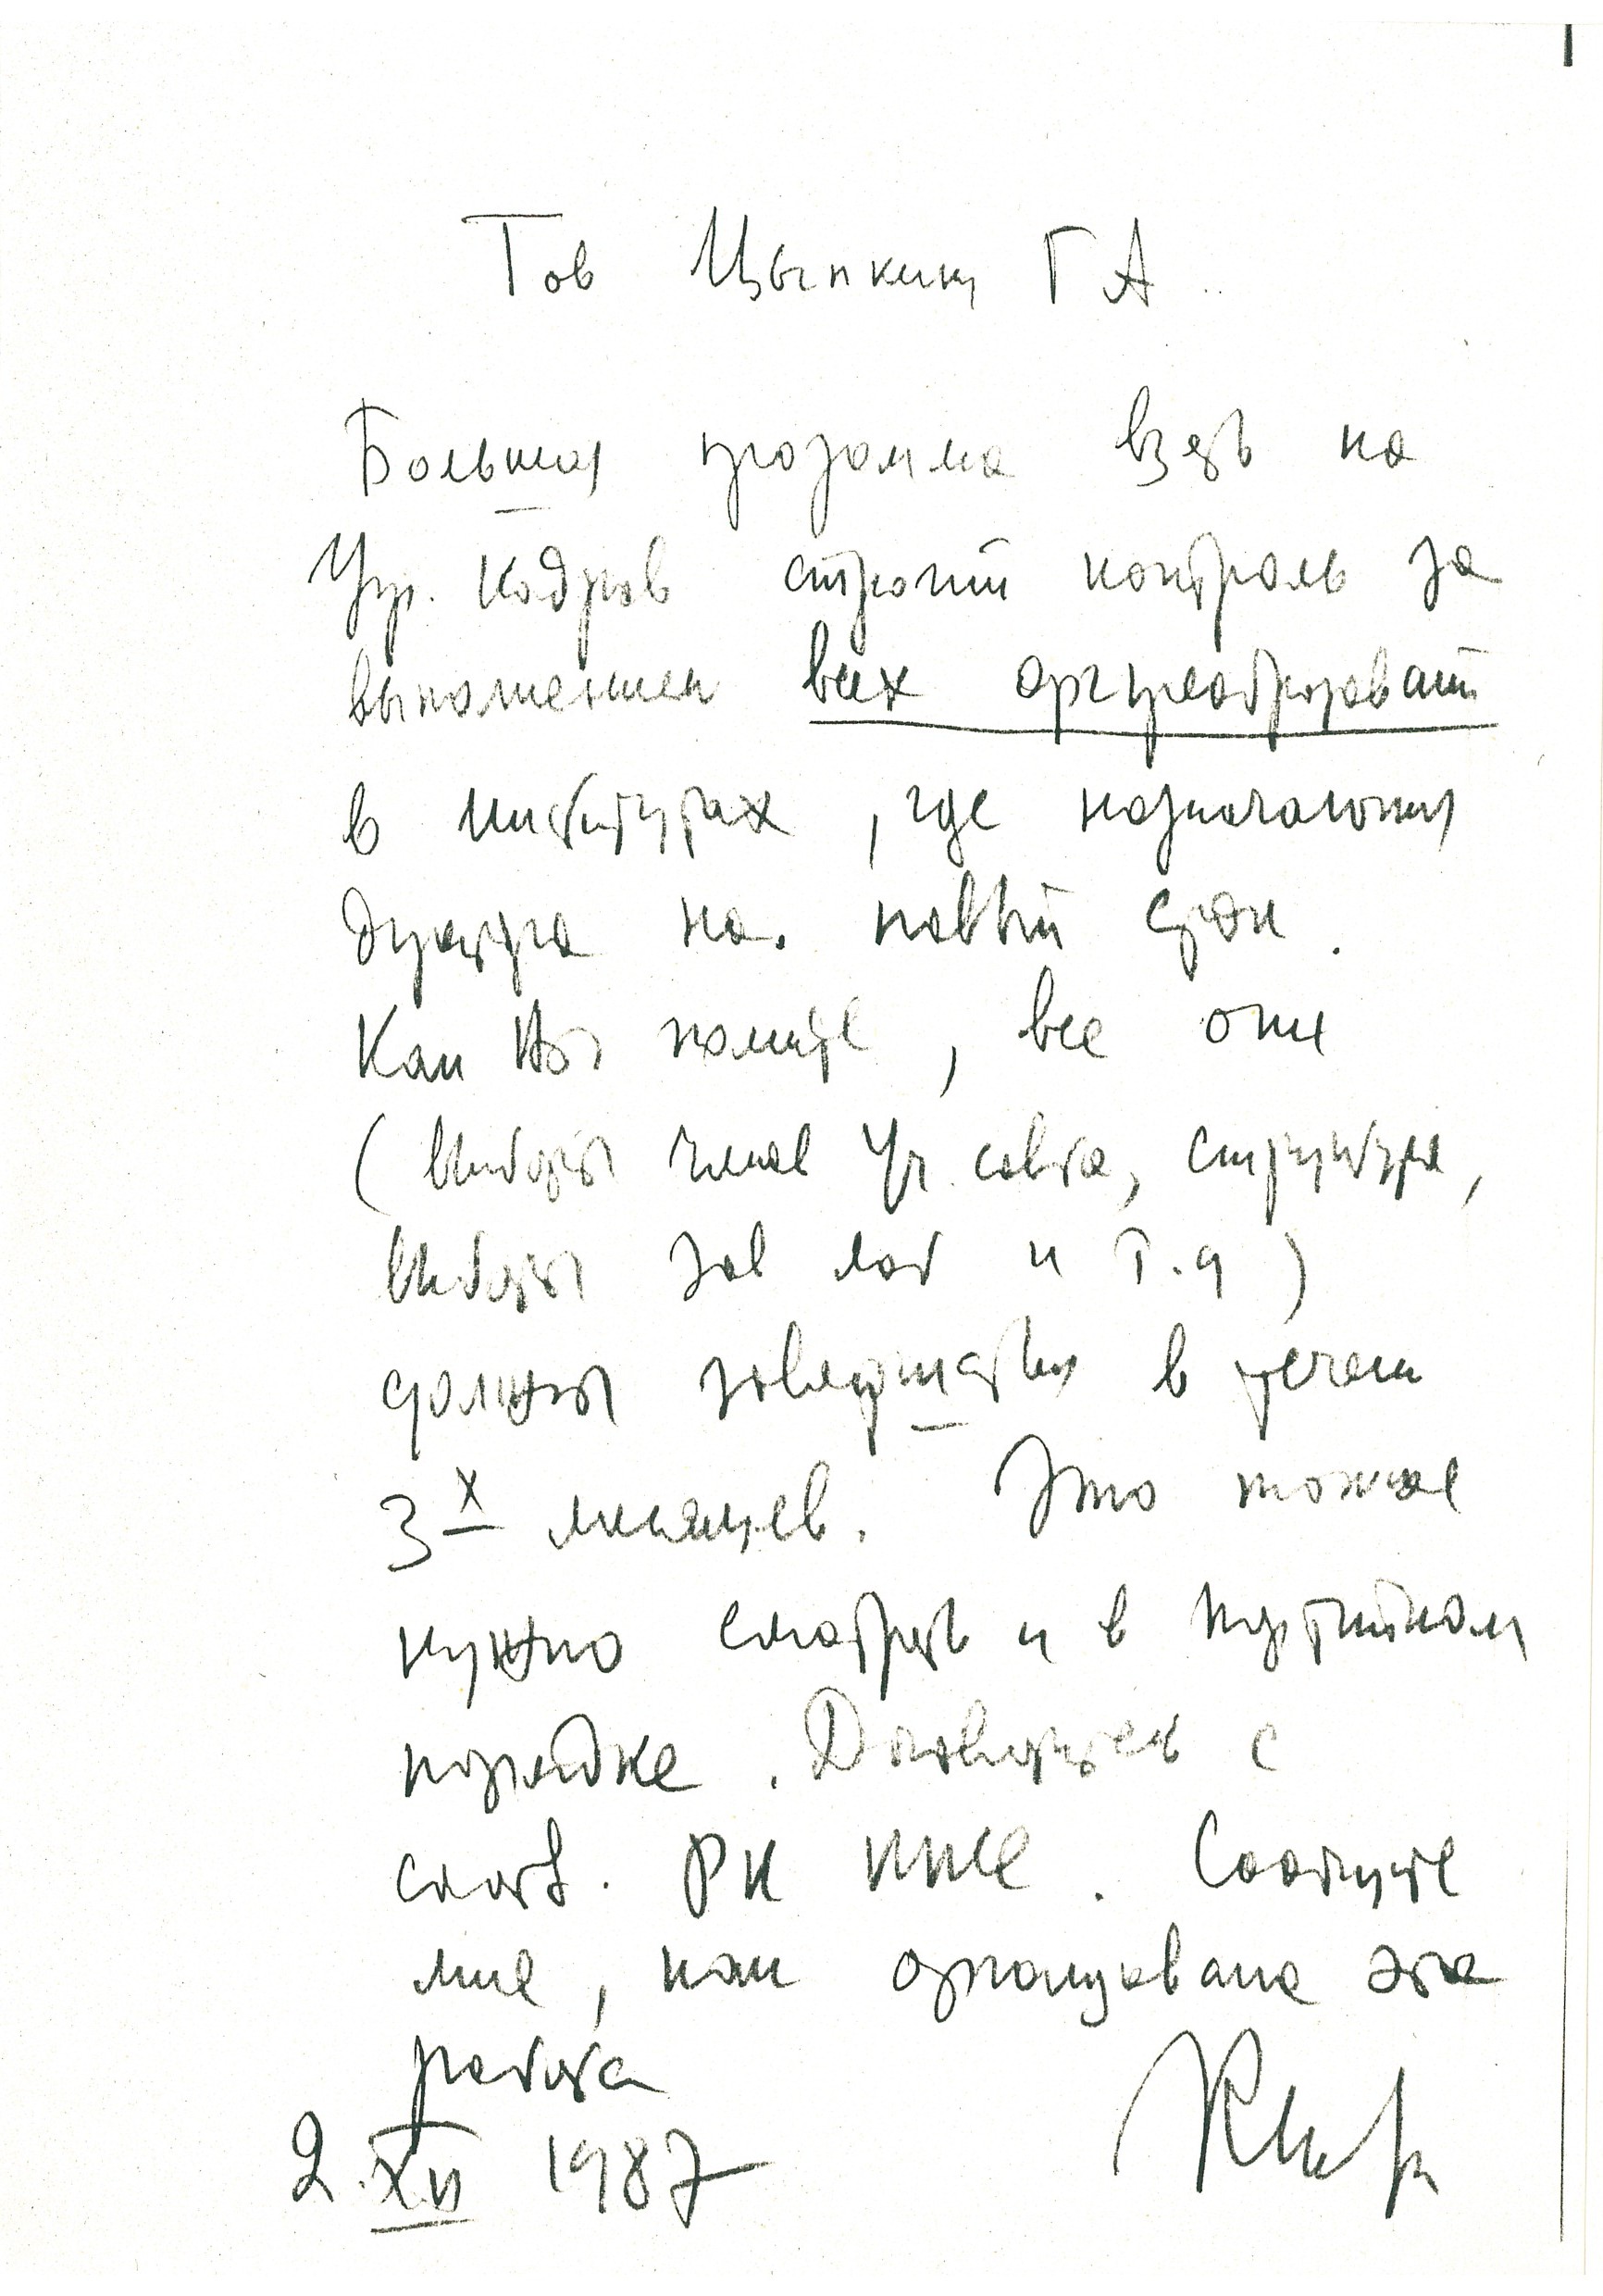 Тов Цыпкину Г А
Большая программа взять на
Упр. Кадров строгий контроль за
выполнением всех оргпреобразований
в институтах, где назначаются
директора на новый срок.
Как Вы помните, все они
(Выборы членов Уч. совета, структура,
Выборы зав лаб и т.д)
должны завершаться в течении
3х месяцев. Это тоже
нужно смотреть и в партийном
порядке. Договоритесь с
соотв. РК КПСС. Сообщите
мне, как организована эта
работа
2.XII 1987